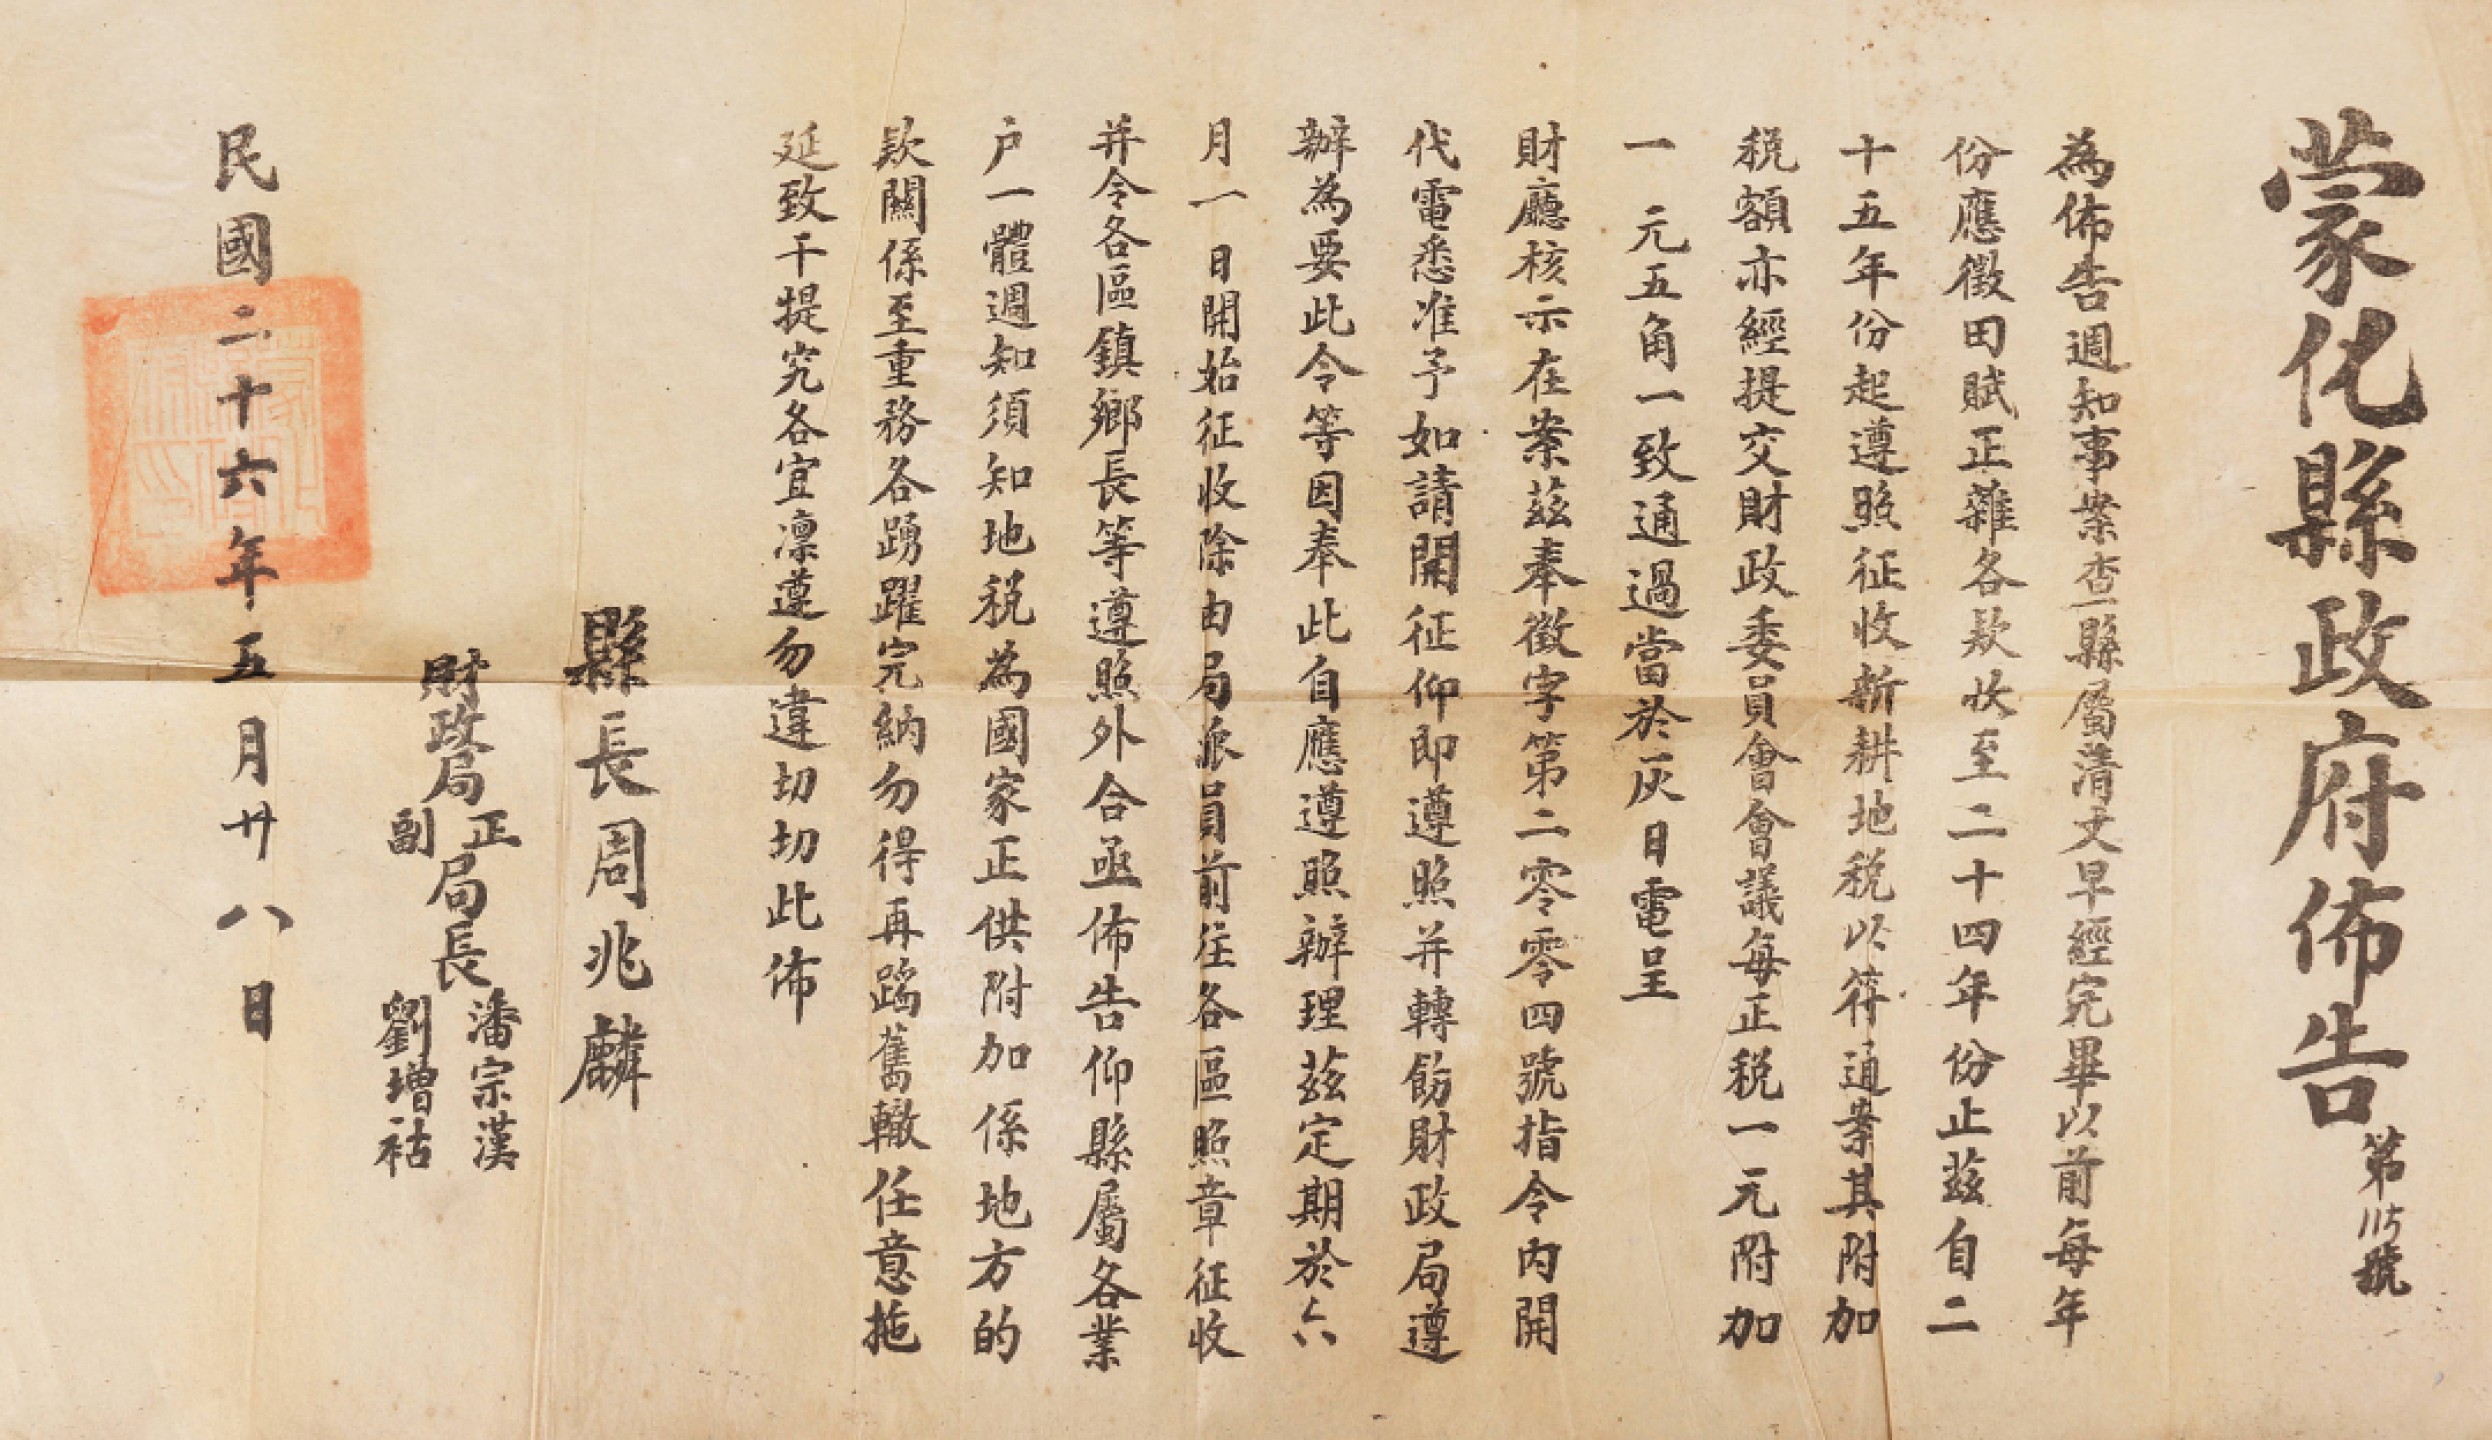 蒙化縣政府佈告
第115號
為佈告週知事案查縣屬清丈早經完畢以前每年
份應徵田賦正雜各款收至二十四年份止茲自二
十五年份起遵照征收新耕地稅以符通案其附加
稅額亦經提交財政委員會會議每正稅一元附加
一元五角一致通過當於灰日電呈
財廳核示在案茲奉徵字第二零零四號指令內開
代電悉准予如請開征仰即遵照并轉飭財政局遵
辦為要此令等因奉此自應遵照辦理茲定期於六
月一日開始征收除由局派員前往各區照章征收
并令各區鎮鄉長等遵照外合亟佈告仰縣屬各業
户一體週知須知地稅為國家正供附加係地方的
款關係至重務各踴躍完納勿得再蹈舊轍任意拖
延致干提究各宜凛遵勿違切切此佈
縣長周兆麟
財政局正局長潘宗漢
副劉增祜
民國二十六年五月廿八日